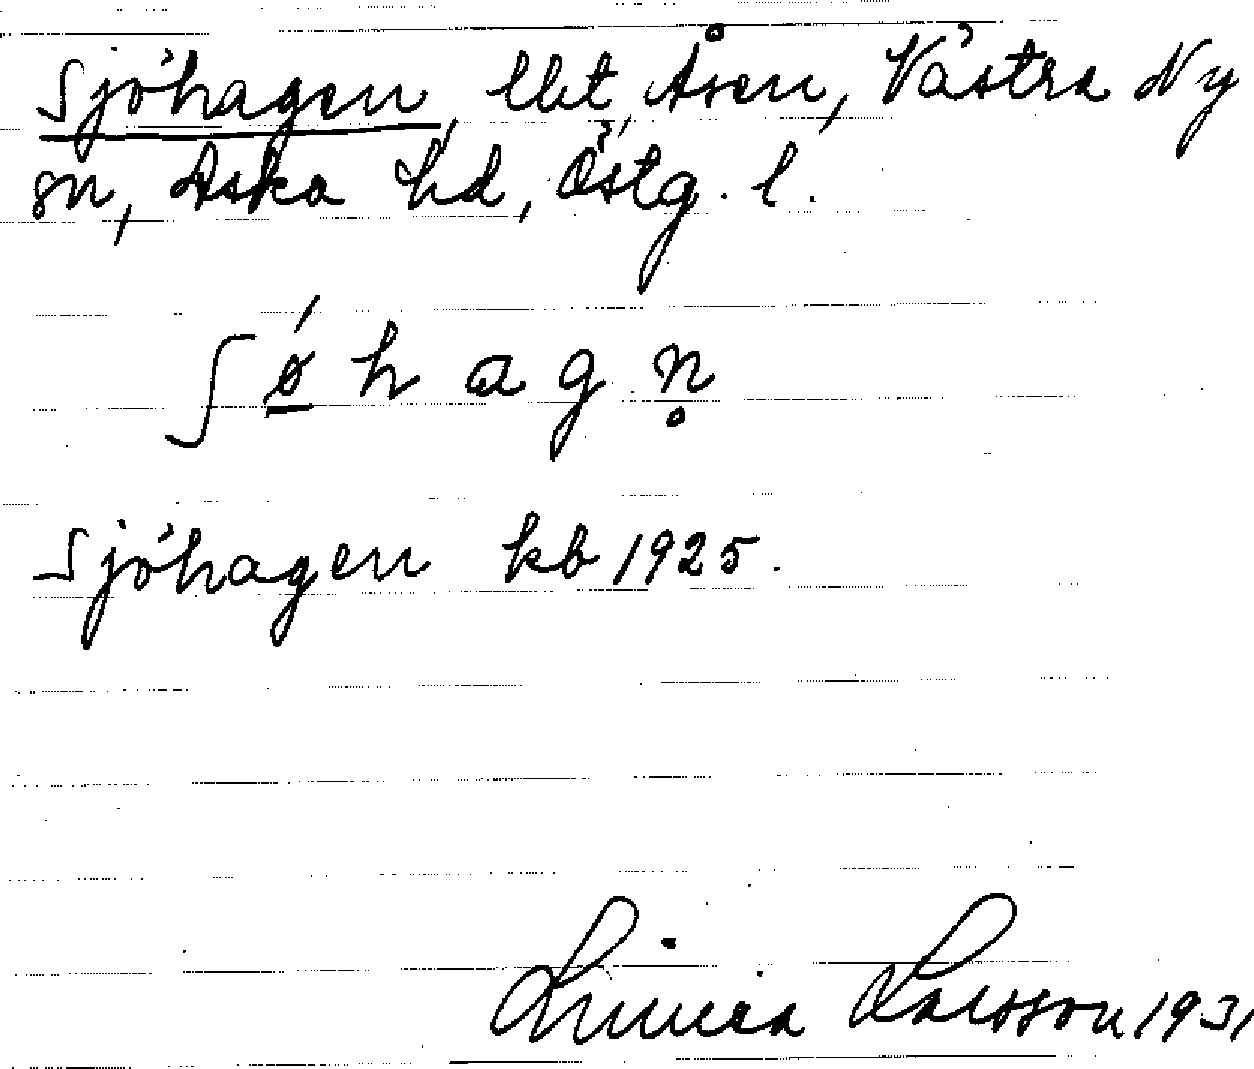 Sjöhagen, lht, Åsen, Västra Ny
sn, Aska hd, Östg. l.
ʃ ǿ h a g n̥
Sjöhagen kb 1925.
Linnéa Larsson 1931